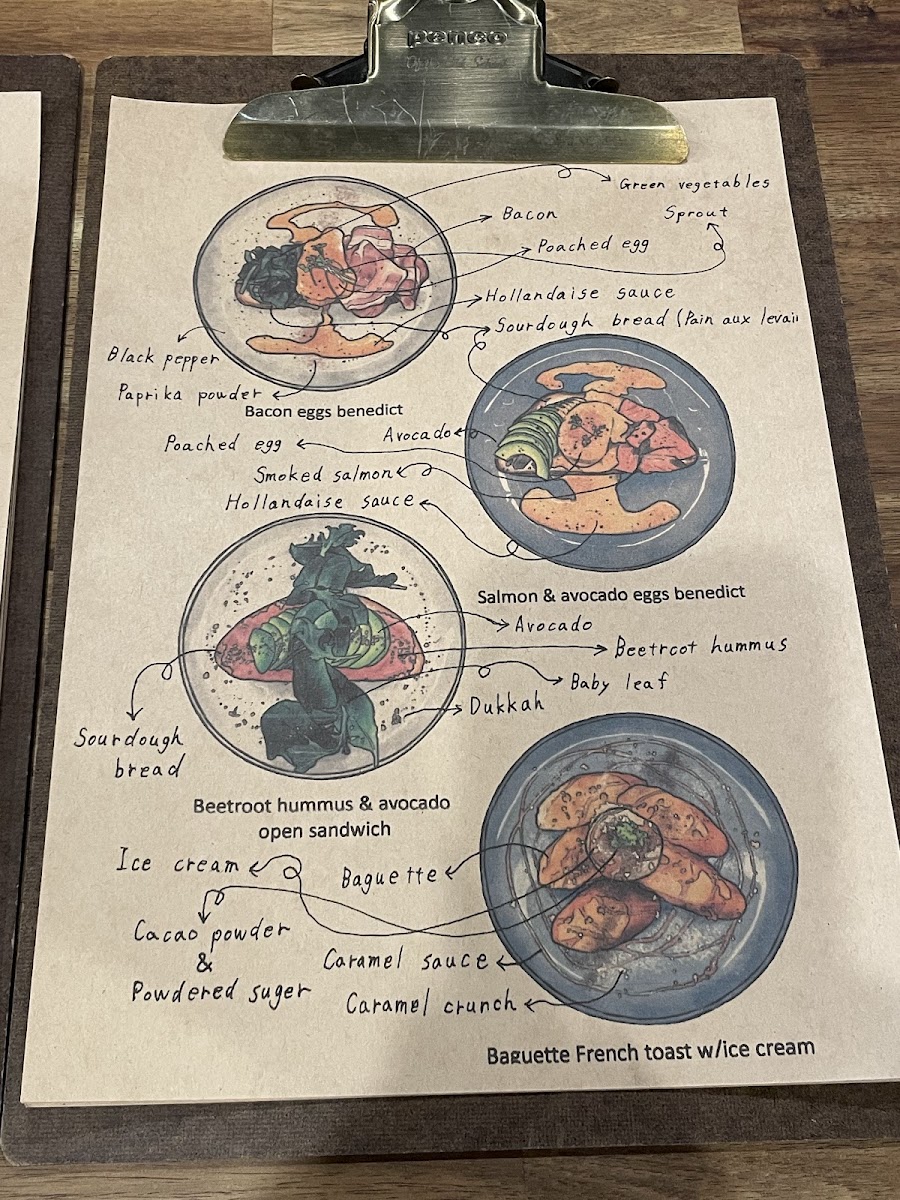 penco
Green vegetables
Sprout
Bacon
Poached egg
Hollandaise sauce
Sourdough bread (Pain aux levain
Black pepper
Paprika powder
Bacon eggs benedict
Avocado
Poached egg
Smoked salmon
Hollandaise sauce
Salmon & avocado eggs benedict
Avocado
Beetroot hummus
Baby leaf
Dukkah
Sourdough
bread
Beetroot hummus & avocado
open sandwich
Ice cream
Baguette
Cacao powder
&
Powdered suger
Caramel sauce
Caramel crunch
Baguette French toast w/ice cream